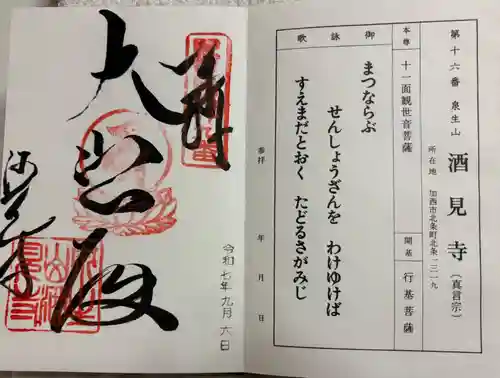 第十六番 泉生山
酒見寺(真言宗)
所在地 加西市北条町北条一三一九
本尊 十一面観世音菩薩
開基 行基菩薩
御詠歌
まつならぶ
せんしょうざんを わけゆけば
すえまだとおく たどるさがみじ
参拝 年 月 日
奉
大悲殿
酒見寺
令和七年九月六日